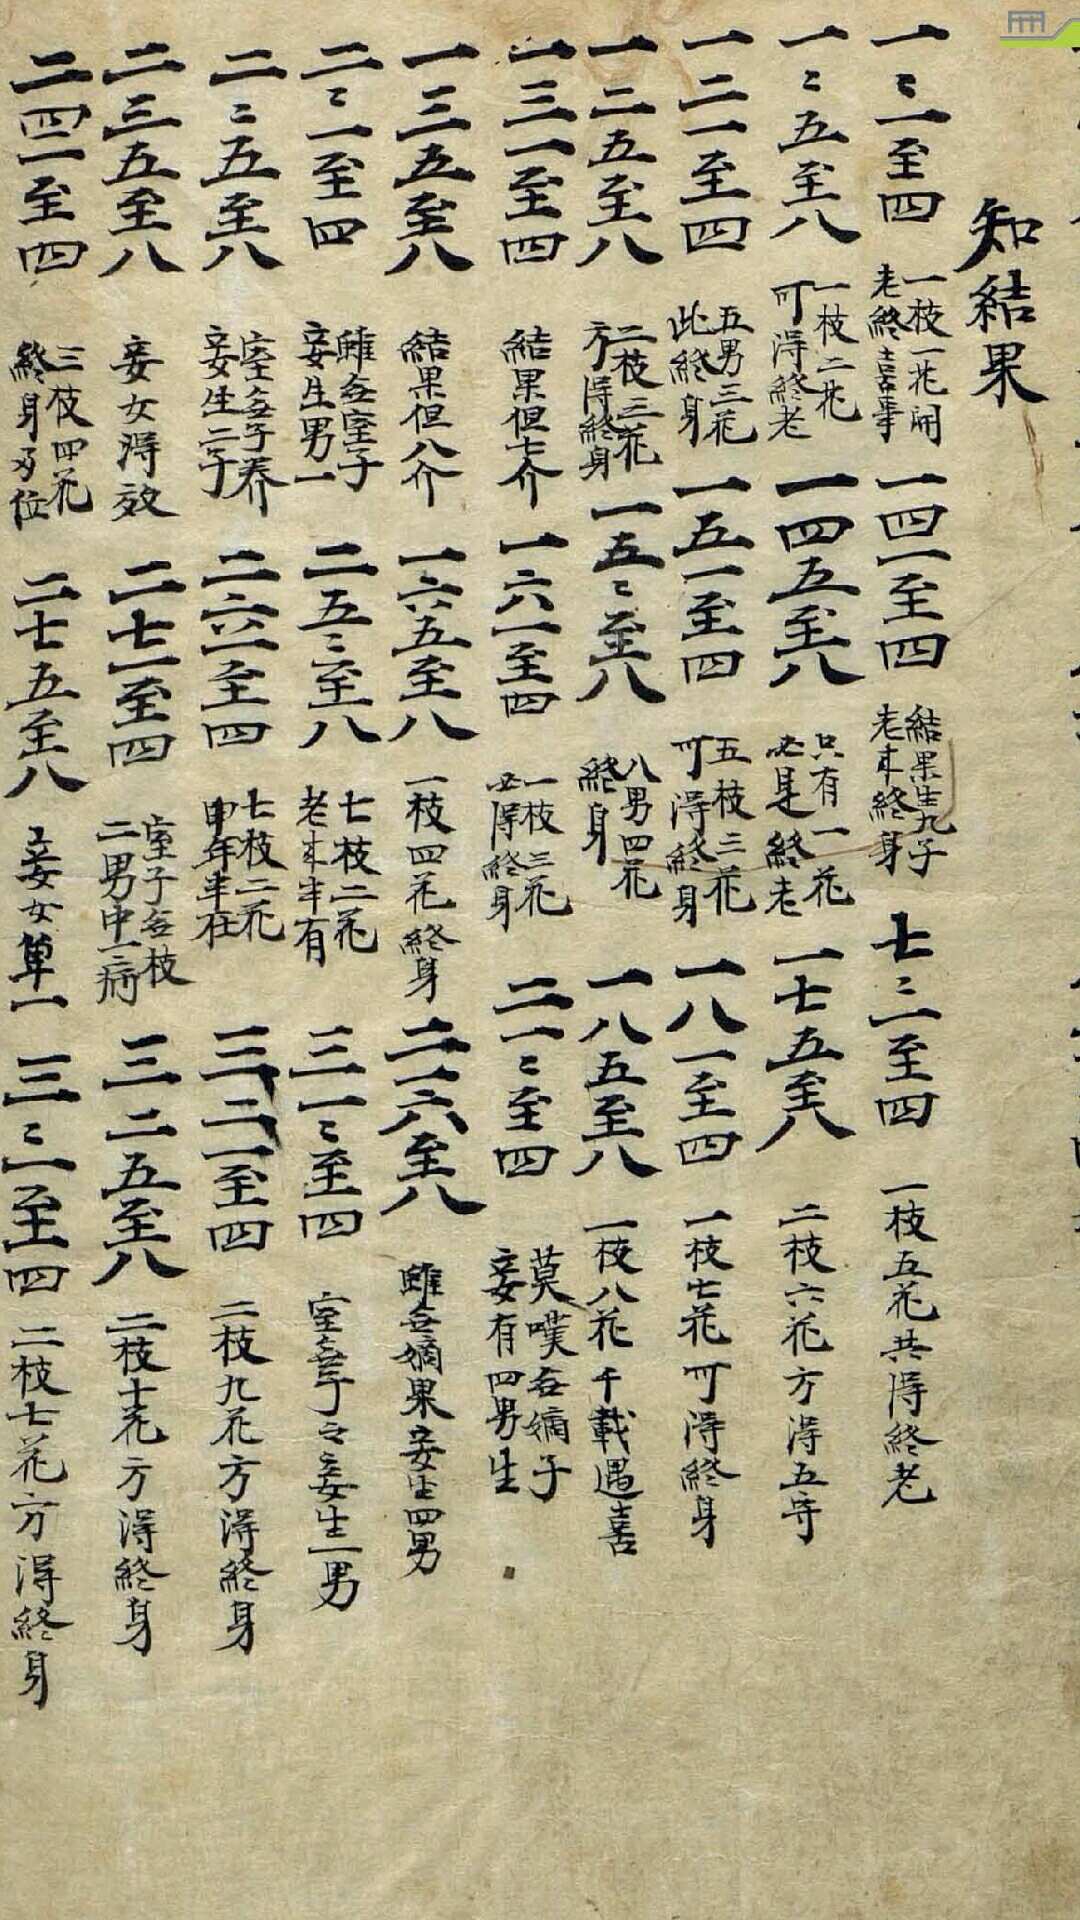 知結果
一〻一至四
一枝一花開
老終喜事
一四一至四
結果生九子
老來終身
七〻一至四
一枝五花共得終老
一〻五至八
一枝二花
可得終老
一四五至八
只有一花
必是終老
一七五至八
二枝六花方得五守
一二一至四
五男三花
此終身
一五一至四
五枝三花
可得終身
一八一至四
一枝七花可得終身
一二五至八
二枝三花
方得終身
一五〻至八
八男四花
終身
一八五至八
一枝八花千載遇喜
一三一至四
結果但七介
一六一至四
一枝三花
必得終身
二一〻至四
莫嘆無嫡子
妾有四男生
一三五至八
結果但八介
一六五至八
一枝四花終身
二一六至八
雖無嫡果妾生四男
二〻一至四
雖無室子
妾生男一
二五〻至八
七枝二花
老來半有
三一〻至四
室無子之妾生一男
二〻五至八
室無子養
妾生二子
二六一至四
七枝二花
申年半在
三二一至四
二枝九花方得終身
二三五至八
妾女得效
二七一至四
室子無枝
二男中一病
三二五至八
二枝十花方得終身
二四一至四
三枝四花
終身多位
二七五至八
妾女單一
三〻一至四
二枝七花方得終身